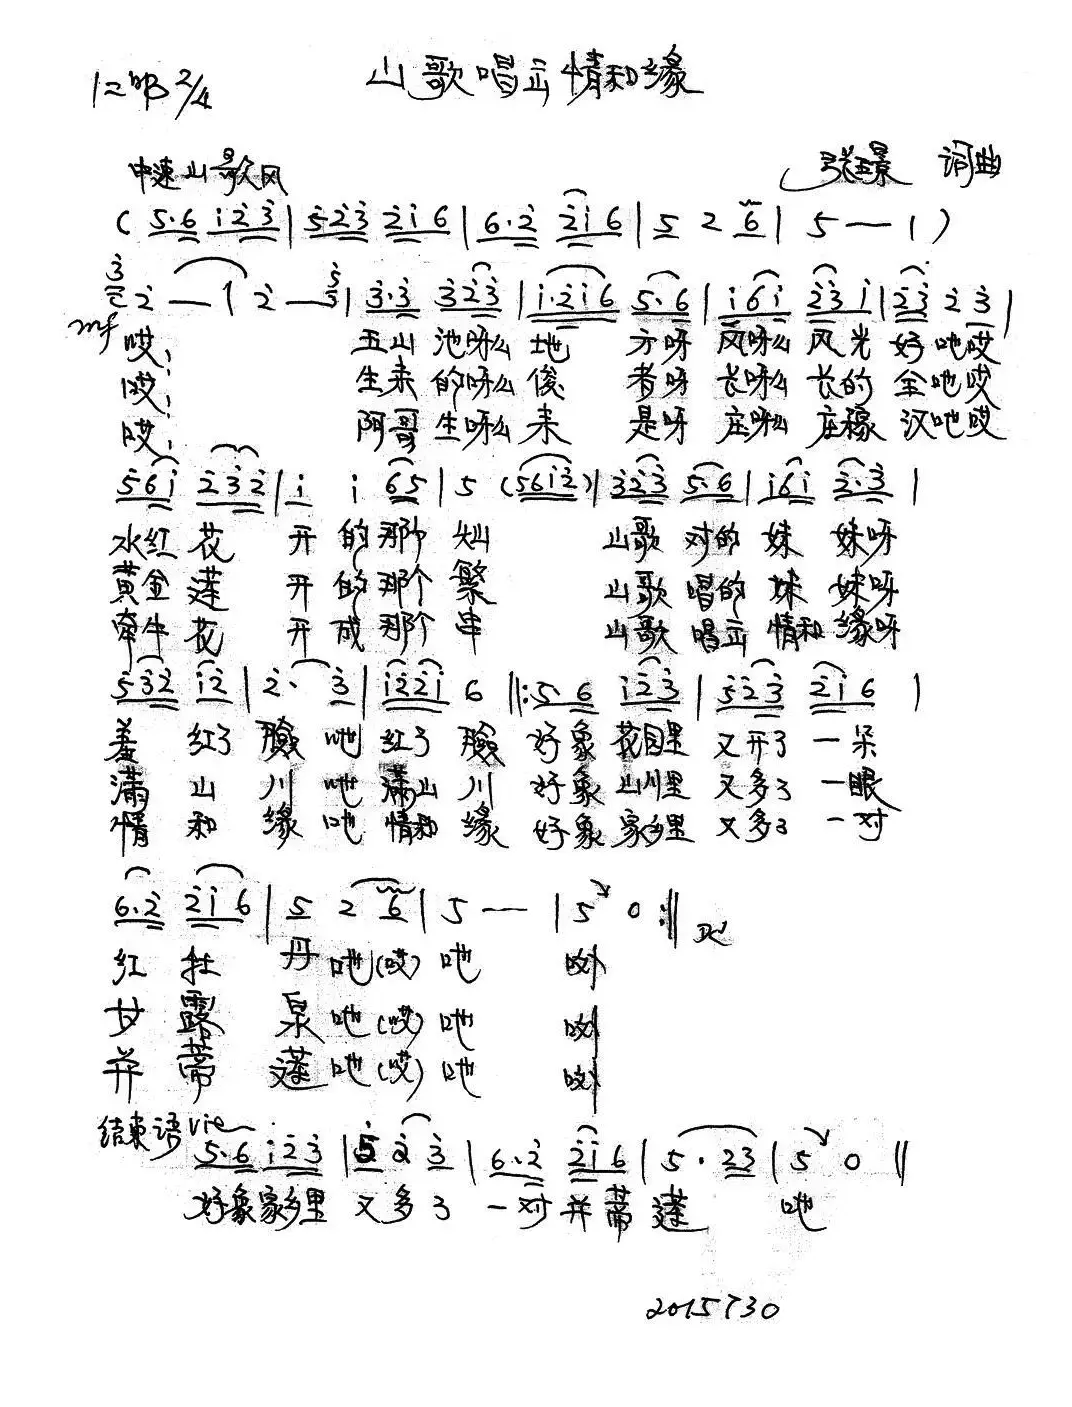 山歌唱云情和缘
1=bB 2/4
中速山歌风
张玉景 词曲
( 5·6 i 2 3 | 5 2 3 2 i 6 | 6·2 2 i 6 | 5 2 6 | 5 — | )
3 2 2 — | 2 — 5 3 | 3·3 3 2 3 | i·2 i 6 5·6 | i 6 i 2 3 i | 2 3 2 3 |
mf
哎, 五山池呀么地 方呀 风呀么风光好吔哎
哎, 生来的呀么俊 者呀 长呀么长的全吔哎
哎, 阿哥生呀么来 是呀 庄呀么庄稼汉吔哎
5 6 i 2 3 2 | i i 6 5 | 5 (5 6 i 2) | 3 2 3 5·6 | i 6 i 2·3 |
水红花 开的那个灿 山歌对的妹妹呀
黄金莲 开的那个繁 山歌唱的妹妹呀
牵牛花 开成那个串 山歌唱云情和缘呀
5 3 2 i 2 | 2· 3 | i 2 2 i 6 ‖: 5·6 i 2 3 | 5 2 3 2 i 6 |
羞 红了脸吔红了脸 好象花园里又开了一朵
满 山川吔满山川 好象山川里又多了一眼
情 和缘吔情和缘 好象家乡里又多了一对
6·2 2 i 6 | 5 2 6 | 5 — | 5 0 :‖ D.C
红牡丹吔(哎)吔 呦
甘露泉吔(哎)吔 呦
并蒂莲吔(哎)吔 呦
结束语
5·6 i 2 3 | 5 2 3 | 6·2 2 i 6 | 5· 2 3 | 5 0 ‖
好象家乡里 又多了 一对并蒂莲 吔
2015730